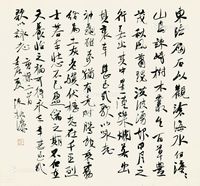 東臨碣石以觀滄海水何澹澹
山島竦峙樹木叢生百草豐
茂秋風蕭瑟洪波湧起日月之
行若出其中星漢燦爛若出
其裏幸甚至哉歌以詠志
神龜雖壽猶有竟時騰蛇乘霧
終為土灰老驥伏櫪志在千里烈
士暮年壯心不已盈縮之期不但在
天養怡之福可得永年幸甚至哉
歌以詠志